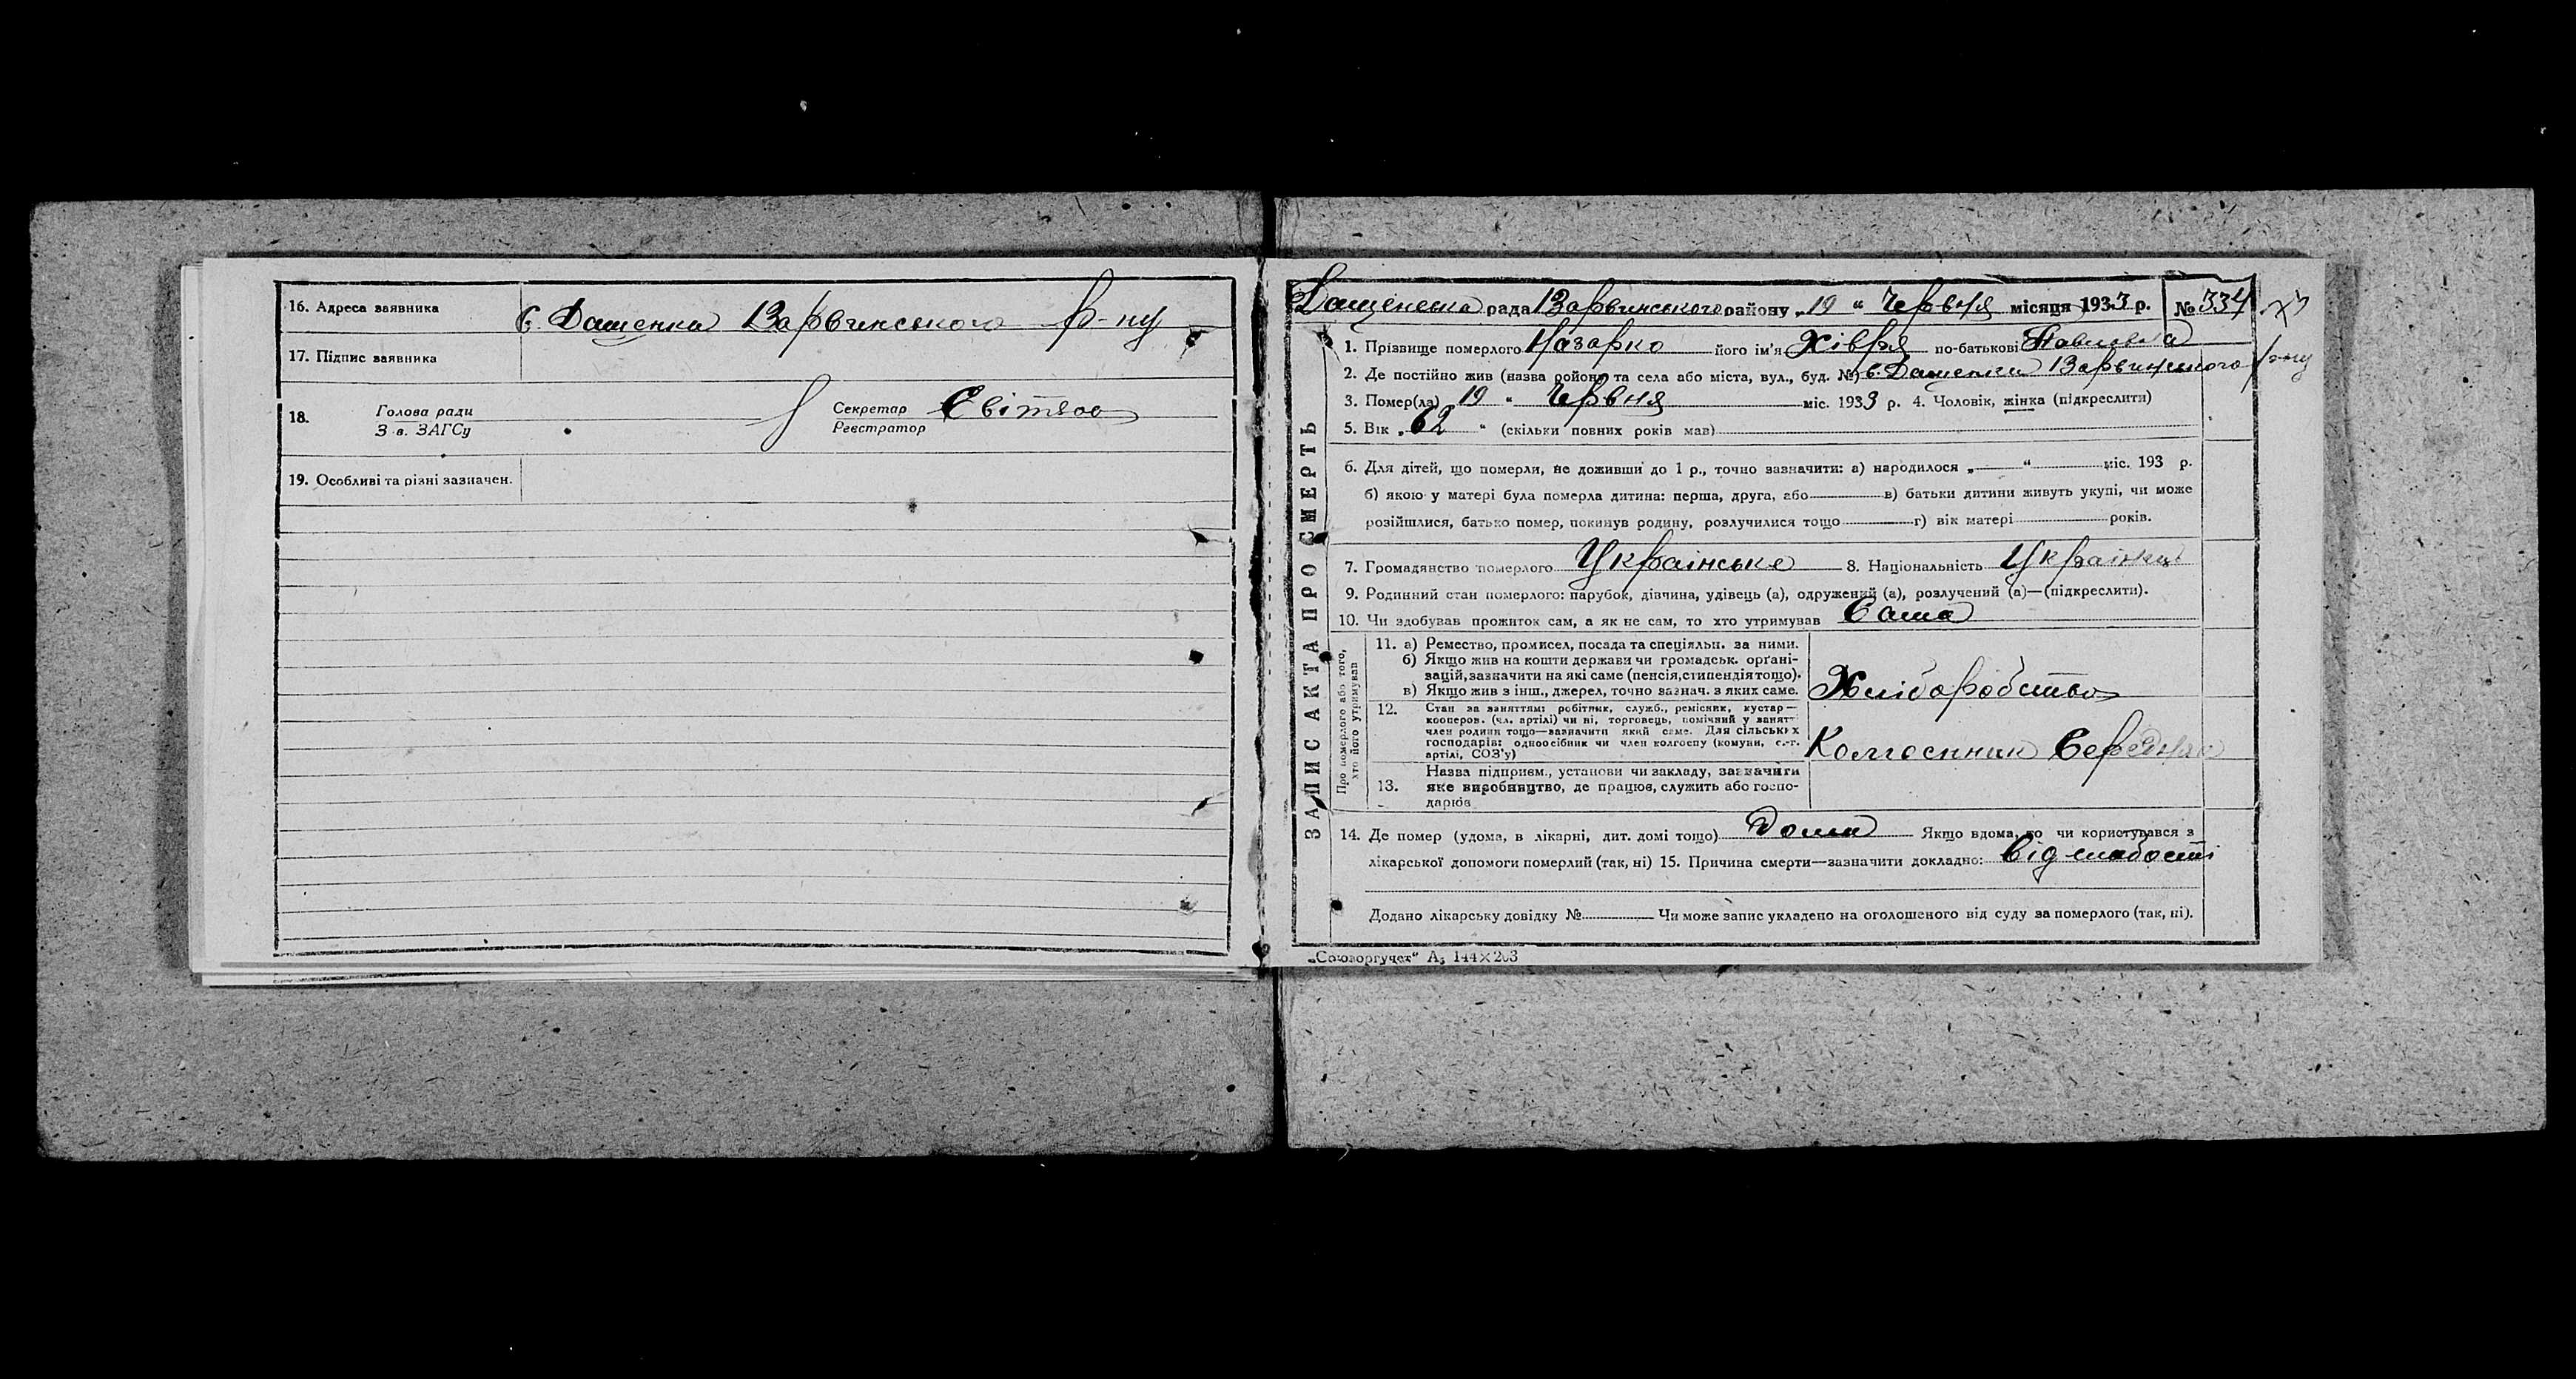 16. Адреса заявника с. Дащенки Варвинського р-ну
17. Підпис заявника
18. Голова ради
З в. ЗАГСу
Секретар
Реєстратор
19. Особливі та різні зазначен.
Дащенська рада Варвинського району „19 “ Червня місяця 1933 р. № 334
ЗАПИС АКТА ПРО СМЕРТЬ
1. Прізвище померлого Назарко його ім'я Хівря по-батькові Павловна
2. Де постійно жив (назва району та села або міста, вул., буд. №) с. Дащенки Варвинського р-ну
3. Помер(ла) 19 “ Червня міс. 1933 р. 4. Чоловік, жінка (підкреслити)
5. Вік „ 62 “ (скільки повних років мав)
6. Для дітей, що померли, не доживши до 1 р., точно зазначити: а) народилося „ “ міс. 193 р.
б) якою у матері була померла дитина: перша, друга, або в) батьки дитини живуть укупі, чи може
розійшлися, батько помер, покинув родину, розлучилися тощо г) вік матері років.
7. Громадянство померлого Українське 8. Національність
9. Родинний стан померлого: парубок, дівчина, удівець (а), одружений (а), розлучений (а)—(підкреслити).
10. Чи здобував прожиток сам, а як не сам, то хто утримував Сама
Про померлого або того,
хто його утримував
11. а) Ремество, промисел, посада та спеціяльн. за ними.
б) Якщо жив на кошти держави чи громадськ. орґані-
зацій, зазначити на які саме (пенсія, стипендія тощо).
в) Якщо жив з інш., джерел, точно зазнач. з яких саме.
Хліборобство
12. Стан за заняттям: робітник, служб., ремісник, кустар—
кооперов. (чл. артілі) чи ні, торговець, помічний у занят
член родини тощо—зазначити який саме. Для сільських
господарів: одноосібник чи член колгоспу (комуни, с.-г.
артілі, СОЗ'у)
Колгоспник Середняк
13. Назва підприєм., установи чи закладу, зазначити
яке виробництво, де працює, служить або госпо-
дарює
14. Де помер (удома, в лікарні, дит. домі тощо) Дома Якщо вдома, то чи користувався з
лікарської допомоги померлий (так, ні) 15. Причина смерти—зазначити докладно: Від слабості
Додано лікарську довідку № Чи може запис укладено на оголошеного від суду за померлого (так, ні).
„Союзоргучет“ А5 144×203